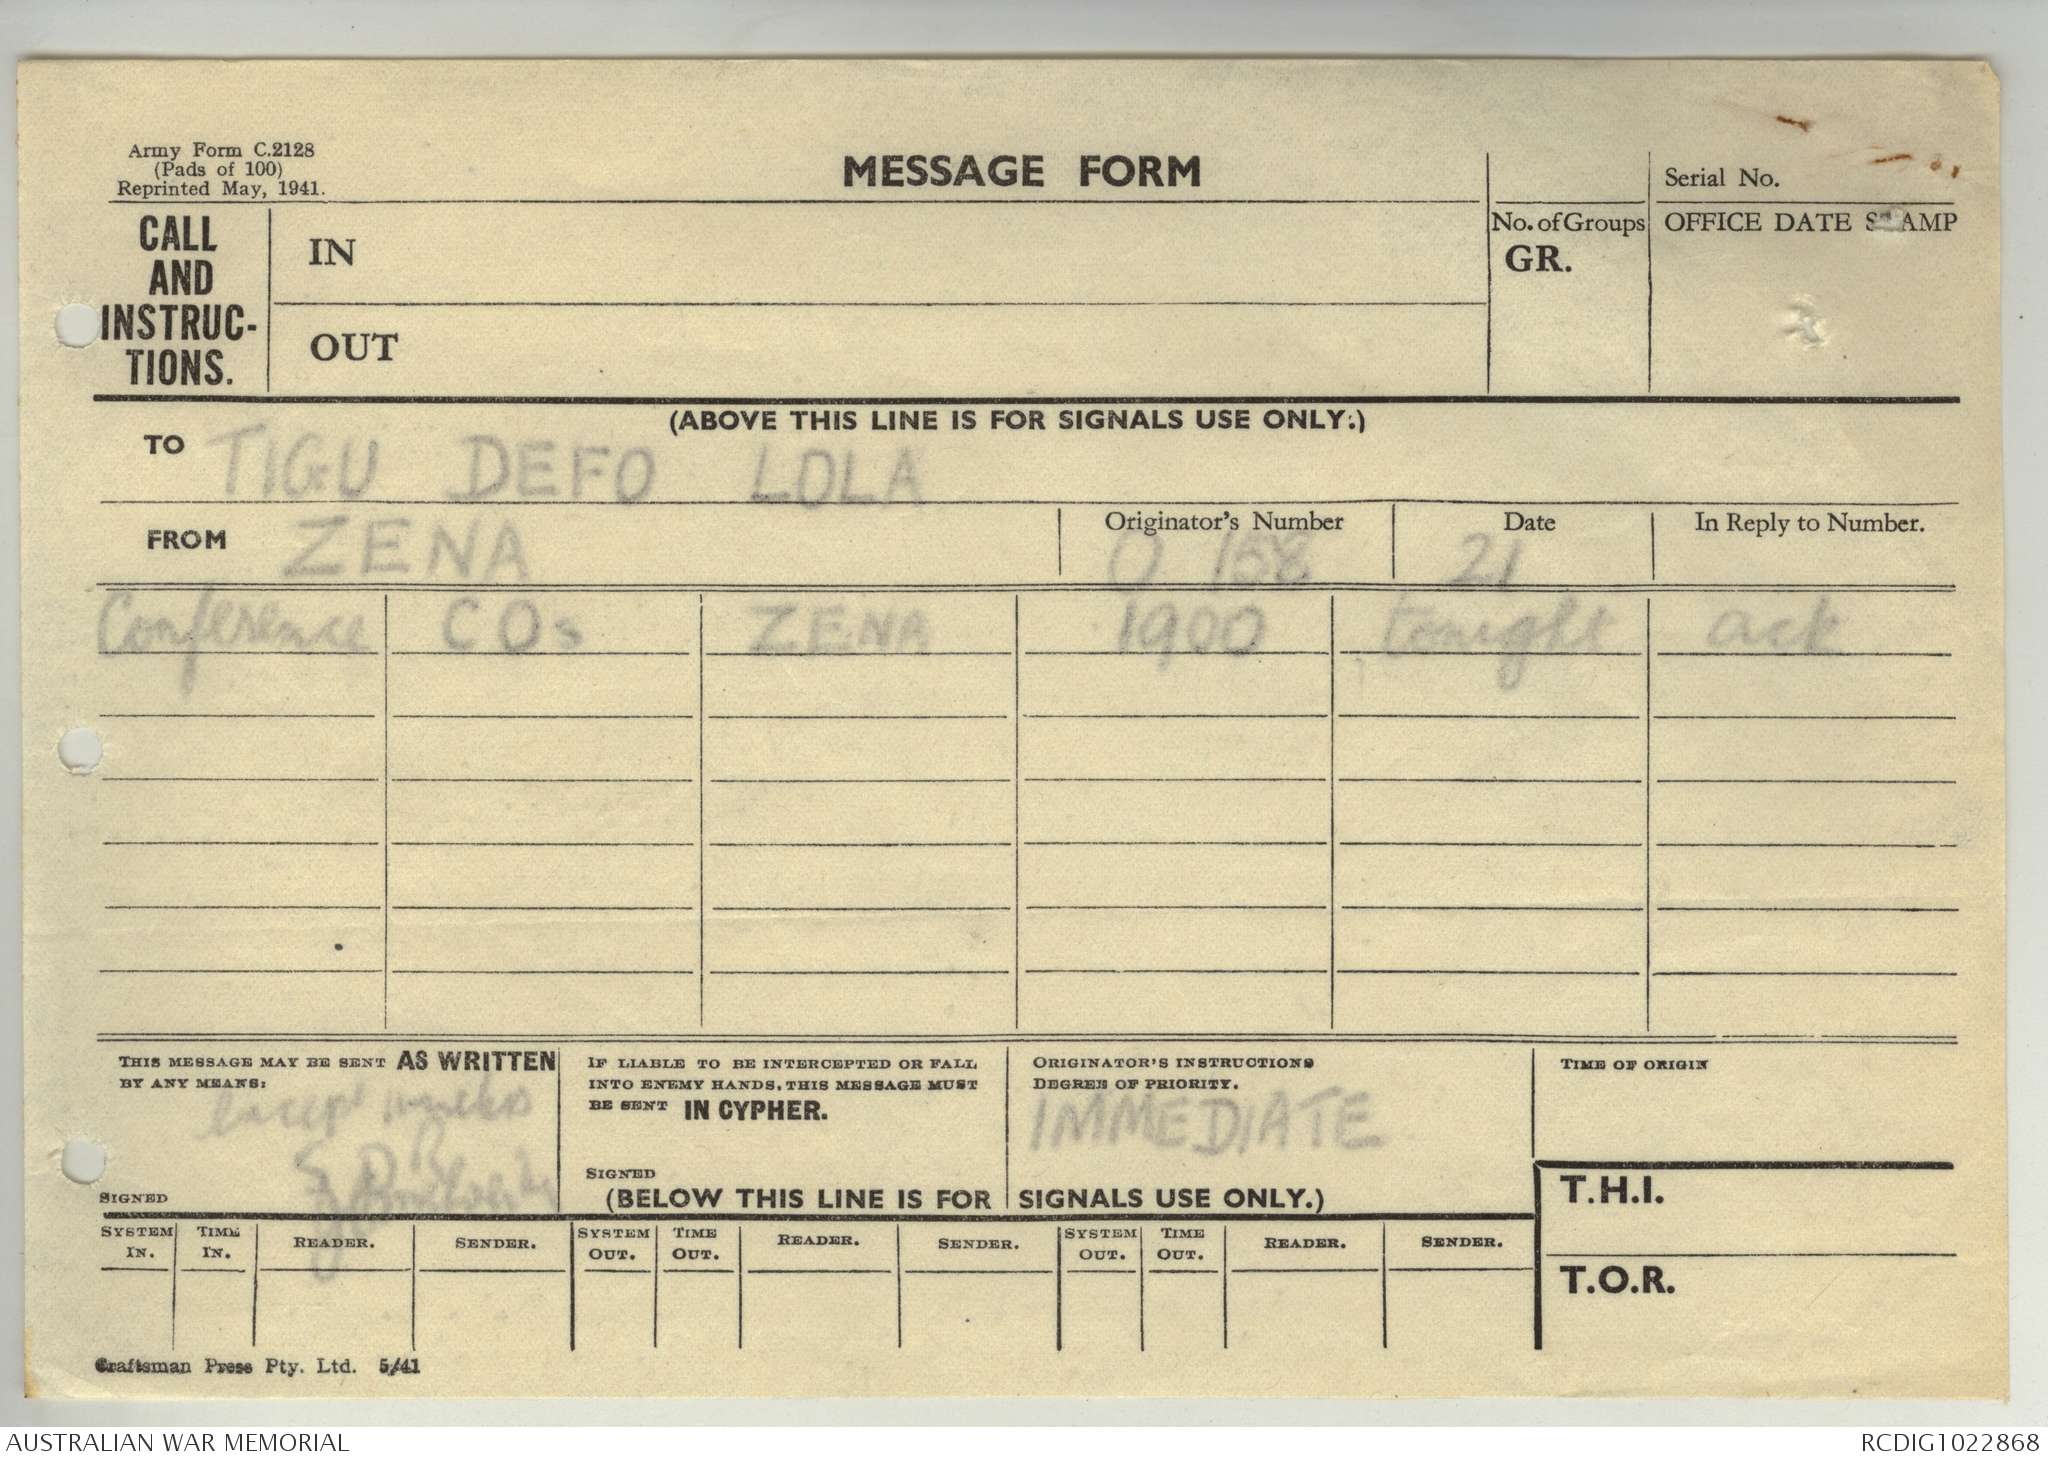 Army Form C.2128
(Pads of 100)
Reprinted May, 1941.
MESSAGE FORM
Serial No.
CALL AND INSTRUC-TIONS.
IN
OUT
No. of Groups
GR.
OFFICE DATE STAMP
(ABOVE THIS LINE IS FOR SIGNALS USE ONLY.)
TO TIGU DEFO LOLA
FROM ZENA
Originator's Number O 158
Date 21
In Reply to Number.
Conference COs ZENA 1900 tonight ack
THIS MESSAGE MAY BE SENT AS WRITTEN
BY ANY MEANS:
except
SIGNED
IF LIABLE TO BE INTERCEPTED OR FALL
INTO ENEMY HANDS, THIS MESSAGE MUST
BE SENT IN CYPHER.
SIGNED
ORIGINATOR'S INSTRUCTIONS
DEGREE OF PRIORITY.
IMMEDIATE
TIME OF ORIGIN
(BELOW THIS LINE IS FOR SIGNALS USE ONLY.)
T.H.I.
T.O.R.
SYSTEM IN. TIME IN. READER. SENDER. SYSTEM OUT. TIME OUT. READER. SENDER. SYSTEM OUT. TIME OUT. READER. SENDER.
Craftsman Press Pty. Ltd. 5/41
AUSTRALIAN WAR MEMORIAL
RCDIG1022868